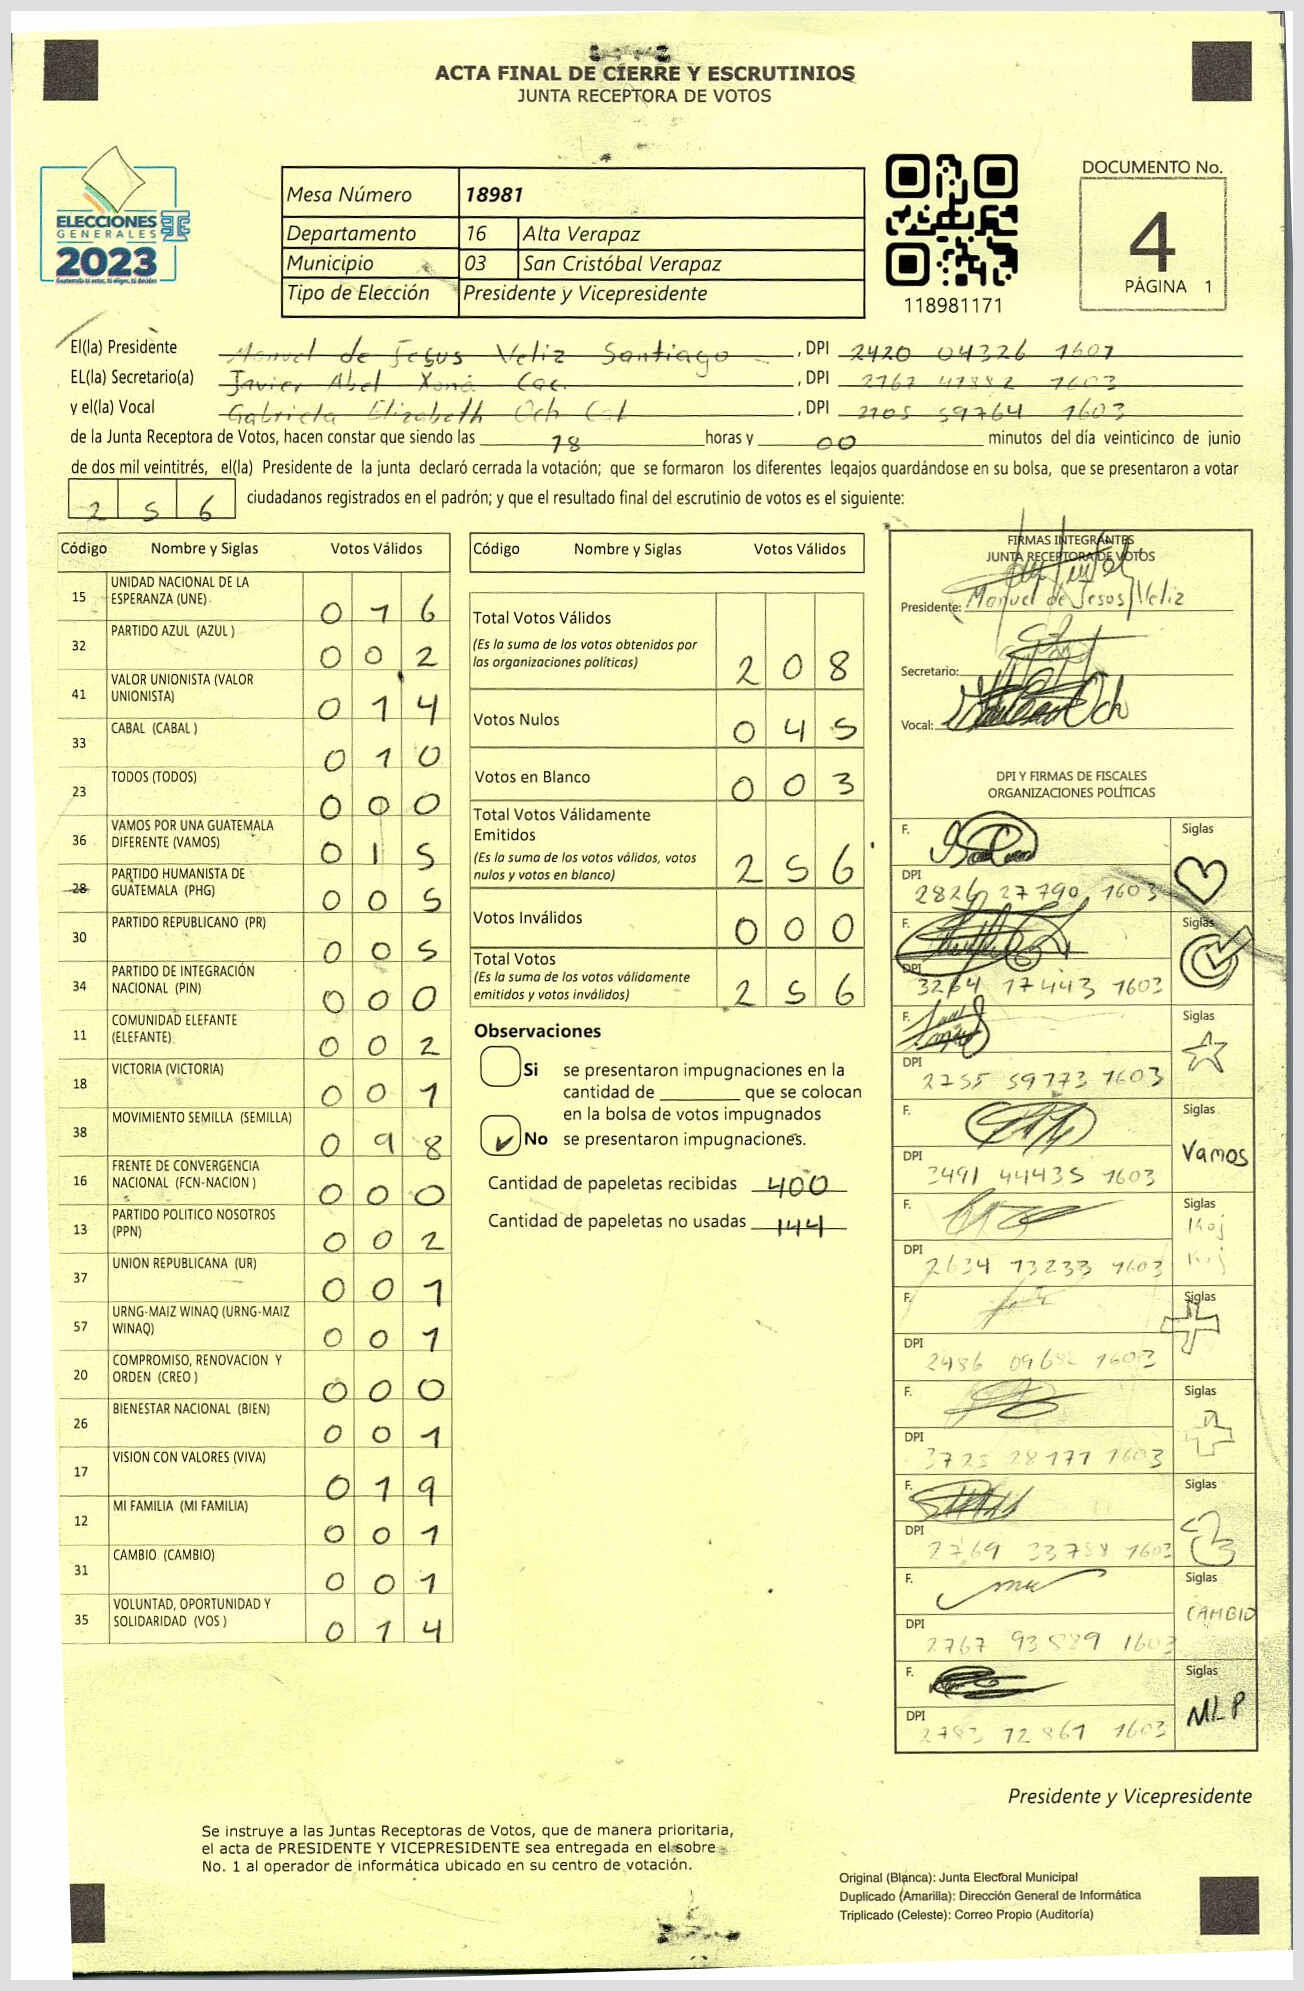 ACTA FINAL DE CIERRE Y ESCRUTINIOS
JUNTA RECEPTORA DE VOTOS
ELECCIONES
GENERALES
2023
Mesa Número 18981
Departamento 16 Alta Verapaz
Municipio 03 San Cristóbal Verapaz
Tipo de Elección Presidente y Vicepresidente
118981171
DOCUMENTO No.
4
PÁGINA 1
El(la) Presidente Manuel de Jesus Veliz Santiago, DPI 2420 04326 1601
EL(la) Secretario(a) Javier Abel Xoná Cac., DPI 2767 41882 1603
y el(la) Vocal Gabriela Elizabeth Och Cal, DPI 2705 59764 1603
de la Junta Receptora de Votos, hacen constar que siendo las 18 horas y 00 minutos del día veinticinco de junio
de dos mil veintitrés, el(la) Presidente de la junta declaró cerrada la votación; que se formaron los diferentes legajos guardándose en su bolsa, que se presentaron a votar
256 ciudadanos registrados en el padrón; y que el resultado final del escrutinio de votos es el siguiente:
Código Nombre y Siglas Votos Válidos
15 UNIDAD NACIONAL DE LA ESPERANZA (UNE) 016
32 PARTIDO AZUL (AZUL ) 002
41 VALOR UNIONISTA (VALOR UNIONISTA) 014
33 CABAL (CABAL ) 010
23 TODOS (TODOS) 000
36 VAMOS POR UNA GUATEMALA DIFERENTE (VAMOS) 015
28 PARTIDO HUMANISTA DE GUATEMALA (PHG) 005
30 PARTIDO REPUBLICANO (PR) 005
34 PARTIDO DE INTEGRACIÓN NACIONAL (PIN) 000
11 COMUNIDAD ELEFANTE (ELEFANTE) 002
18 VICTORIA (VICTORIA) 001
38 MOVIMIENTO SEMILLA (SEMILLA) 098
16 FRENTE DE CONVERGENCIA NACIONAL (FCN-NACION ) 000
13 PARTIDO POLITICO NOSOTROS (PPN) 002
37 UNION REPUBLICANA (UR) 001
57 URNG-MAIZ WINAQ (URNG-MAIZ WINAQ) 001
20 COMPROMISO, RENOVACION Y ORDEN (CREO ) 000
26 BIENESTAR NACIONAL (BIEN) 001
17 VISION CON VALORES (VIVA) 019
12 MI FAMILIA (MI FAMILIA) 001
31 CAMBIO (CAMBIO) 001
35 VOLUNTAD, OPORTUNIDAD Y SOLIDARIDAD (VOS ) 014
Código Nombre y Siglas Votos Válidos
Total Votos Válidos
(Es la suma de los votos obtenidos por
las organizaciones políticas) 208
Votos Nulos 045
Votos en Blanco 003
Total Votos Válidamente
Emitidos
(Es la suma de los votos válidos, votos
nulos y votos en blanco) 256
Votos Inválidos 000
Total Votos
(Es la suma de los votos válidamente
emitidos y votos inválidos) 256
Observaciones
Si se presentaron impugnaciones en la
cantidad de ________ que se colocan
en la bolsa de votos impugnados
No se presentaron impugnaciones.
Cantidad de papeletas recibidas 400
Cantidad de papeletas no usadas 144
FIRMAS INTEGRANTES
JUNTA RECEPTORA DE VOTOS
Presidente: Manuel de Jesus Veliz
Secretario:
Vocal: Och
DPI Y FIRMAS DE FISCALES
ORGANIZACIONES POLÍTICAS
F. Siglas
DPI 2826 27790 1603
F. Siglas
DPI 3264 17443 1603
F. Siglas
DPI 2755 59773 1603
F. Siglas
DPI 3491 44435 1603 Vamos
F. Siglas
DPI 2634 13233 1603
F. Siglas
DPI 2486 1603
F. Siglas
DPI 3725 28177 1603
F. Siglas
DPI 2769 33758 1603
F. Siglas
DPI 2767 93889 1603 CAMBIO
F. Siglas
DPI 2783 12861 1603 MLP
Presidente y Vicepresidente
Se instruye a las Juntas Receptoras de Votos, que de manera prioritaria,
el acta de PRESIDENTE Y VICEPRESIDENTE sea entregada en el sobre
No. 1 al operador de informática ubicado en su centro de votación.
Original (Blanca): Junta Electoral Municipal
Duplicado (Amarilla): Dirección General de Informática
Triplicado (Celeste): Correo Propio (Auditoría)